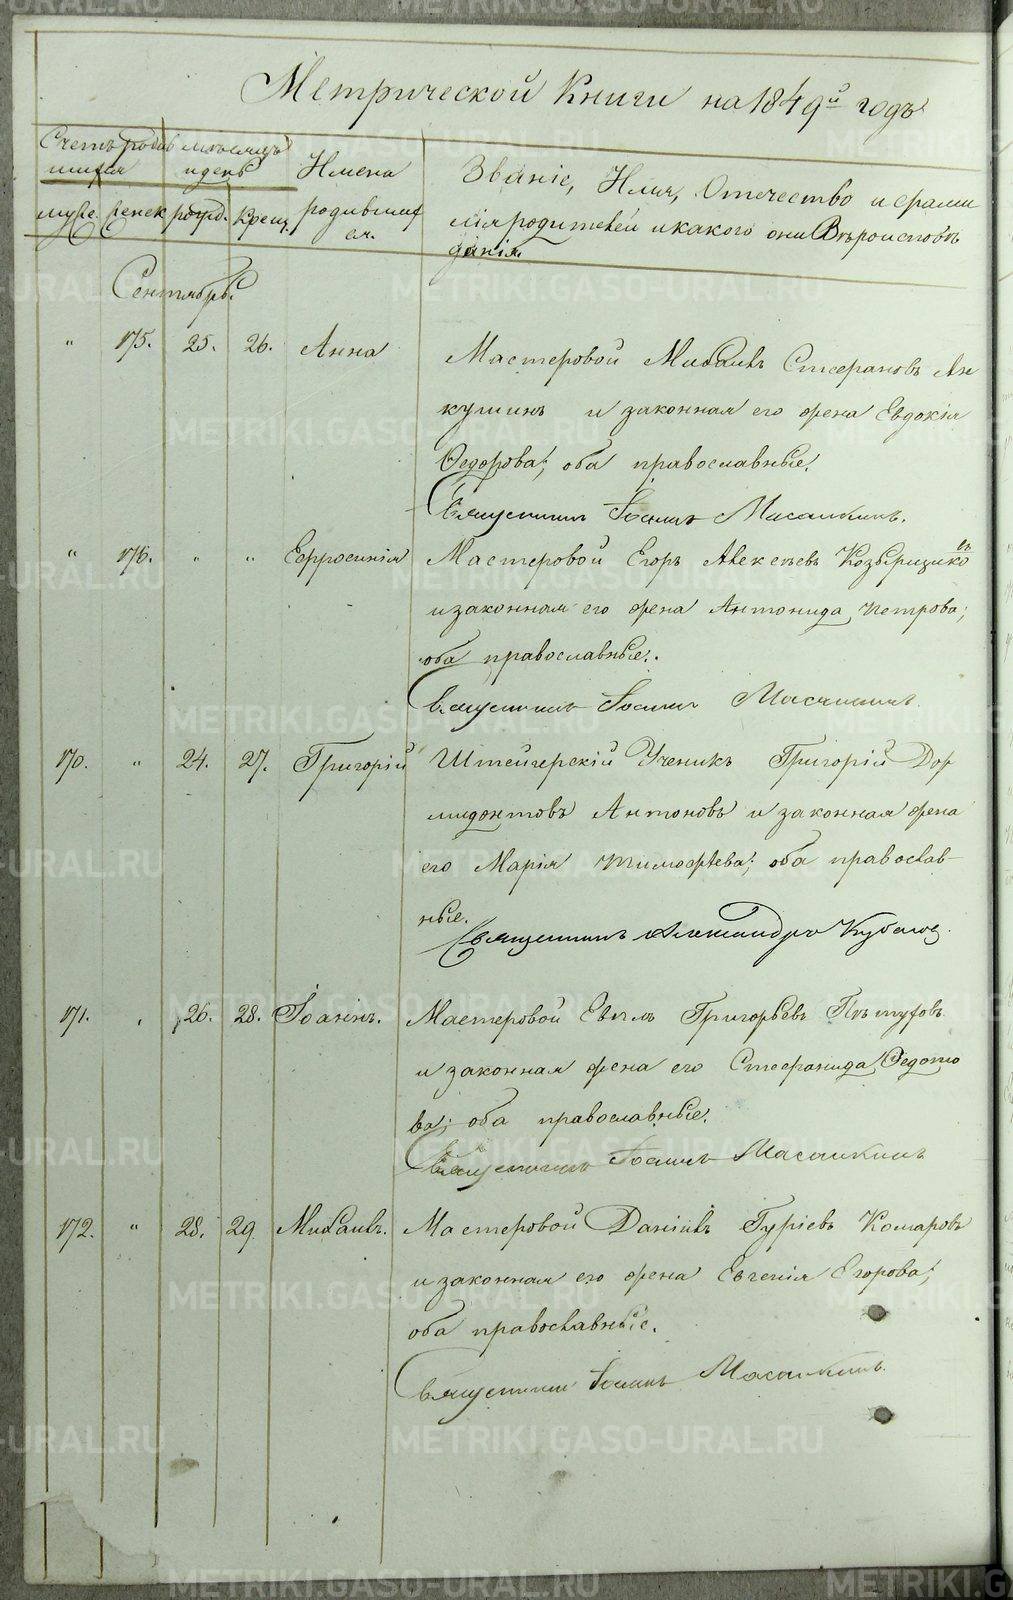 Метрической Книги на 1849й годъ
Счетъ родив шихся
муже. женск
мѣсяцъ и день
рожд. Крещ.
Имена родившихся.
Званіе, Имя, Отчество и фами
лія родителей и какого они Вѣроисповѣ
данія
Сентябрь.
" 175. 25. 26. Анна Мастеровой Михаилъ Стефановъ
и законная его жена Евдокія
Ѳедорова; оба православные.
Священникъ Іоаннъ
" 176. " " Ефросинія Мастеровой Егоръ Алексѣевъ
и законная его жена Антонида Петрова;
оба православные.
Священникъ Іоаннъ
170. " 24. 27. Григорій Штейгерскій Ученикъ Григорій Дор
мидонтовъ Антоновъ и законная жена
его Марія Тимофѣева; оба православ-
ные.
Священникъ Александръ
171. " 26. 28. Іоаннъ. Мастеровой Григорьевъ Пѣтуховъ
и законная жена его Стефанида Ѳедото
ва; оба православные.
Священникъ Іоаннъ
172. " 28. 29 Михаилъ. Мастеровой Даніилъ Гуріевъ Комаровъ
и законная его жена Евгенія Егорова;
оба православные.
Священникъ Іоаннъ
METRIKI.GASO-URAL.RU